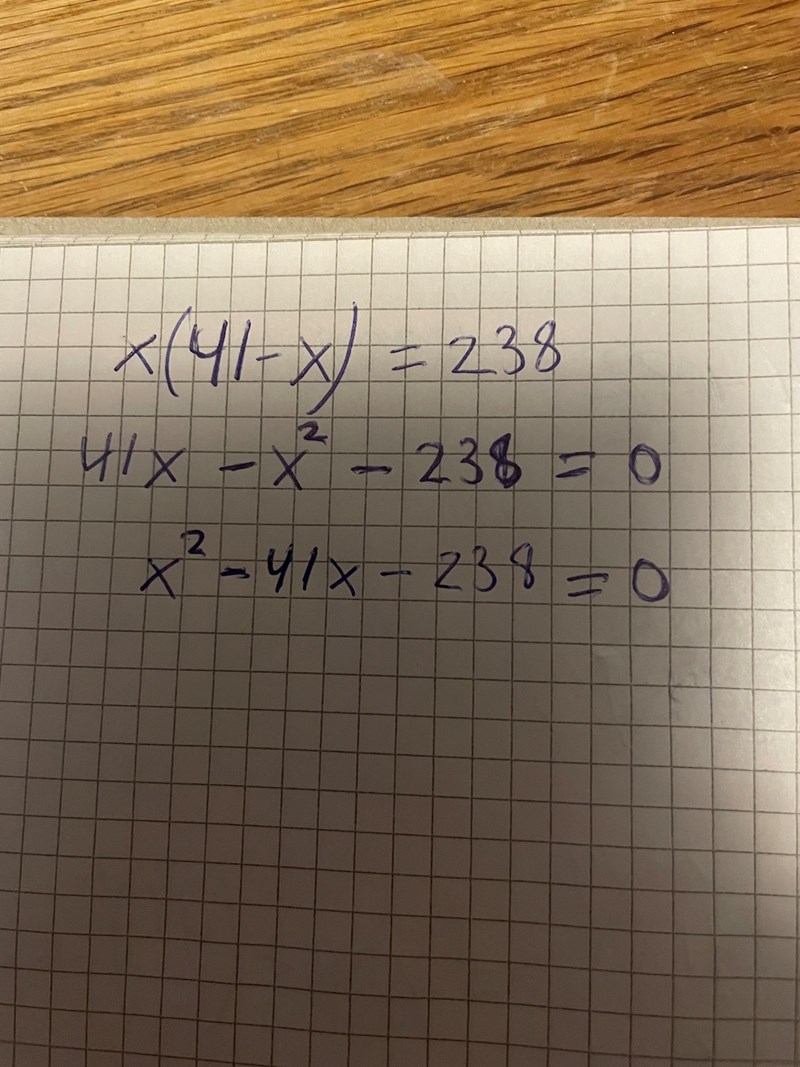 x(41-x) = 238
41x - x² - 238 = 0
x² - 41x - 238 = 0